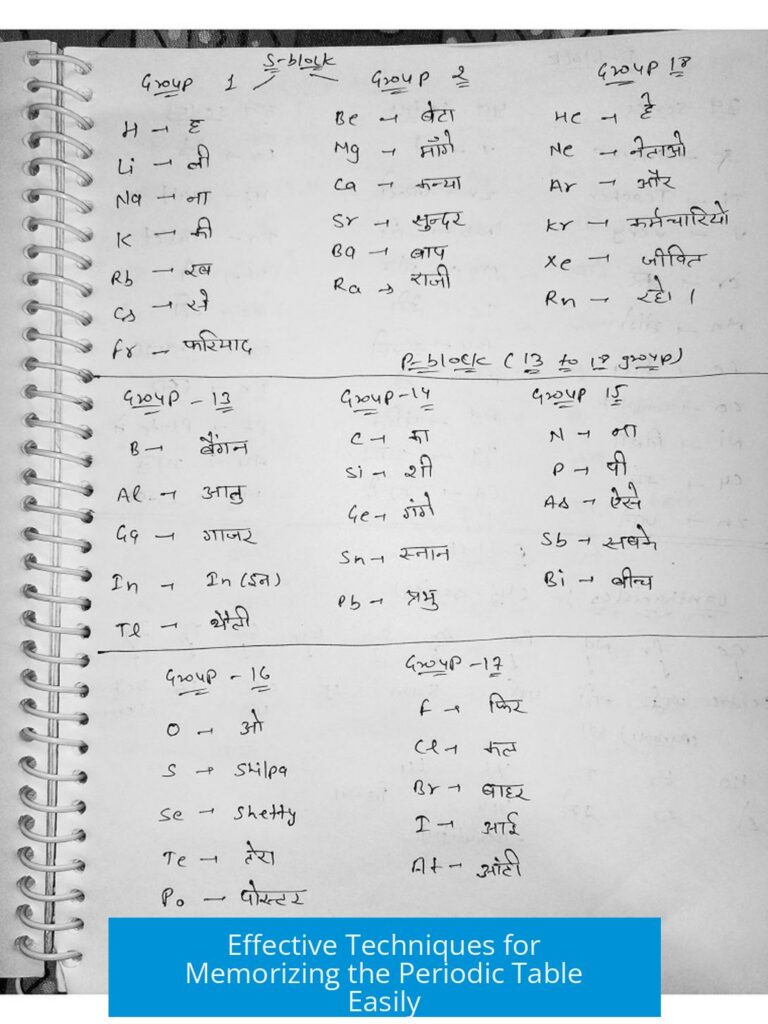 S-block
Group 1
H → ह
Li → ली
Na → ना
K → की
Rb → रब
Cs → से
Fr – फरियाद
Group 2
Be → बेटा
Mg → माँगे
Ca → कन्या
Sr → सुन्दर
Ba → बाप
Ra → राजी
Group 18
He → हे
Ne → नेताओ
Ar → और
Kr → कर्मचारियो
Xe → जीवित
Rn → रहे।
P-block (13 to 18 group)
Group - 13
B → बैंगन
Al → आलु
Ga → गाजर
In → In (इन)
Tl → थैली
Group-14
C → का
Si → शी
Ge → गंगे
Sn → स्नान
Pb → प्रभु
Group 15
N → ना
P → पी
As → ऐसे
Sb → सबके
Bi → बीच
Group - 16
O → ओ
S → Shilpa
Se → Shetty
Te → तेरा
Po → पोस्टर
Group -17
F → फिर
Cl → कल
Br → बाहर
I → आई
At – आंटी
Effective Techniques for
Memorizing the Periodic Table
Easily